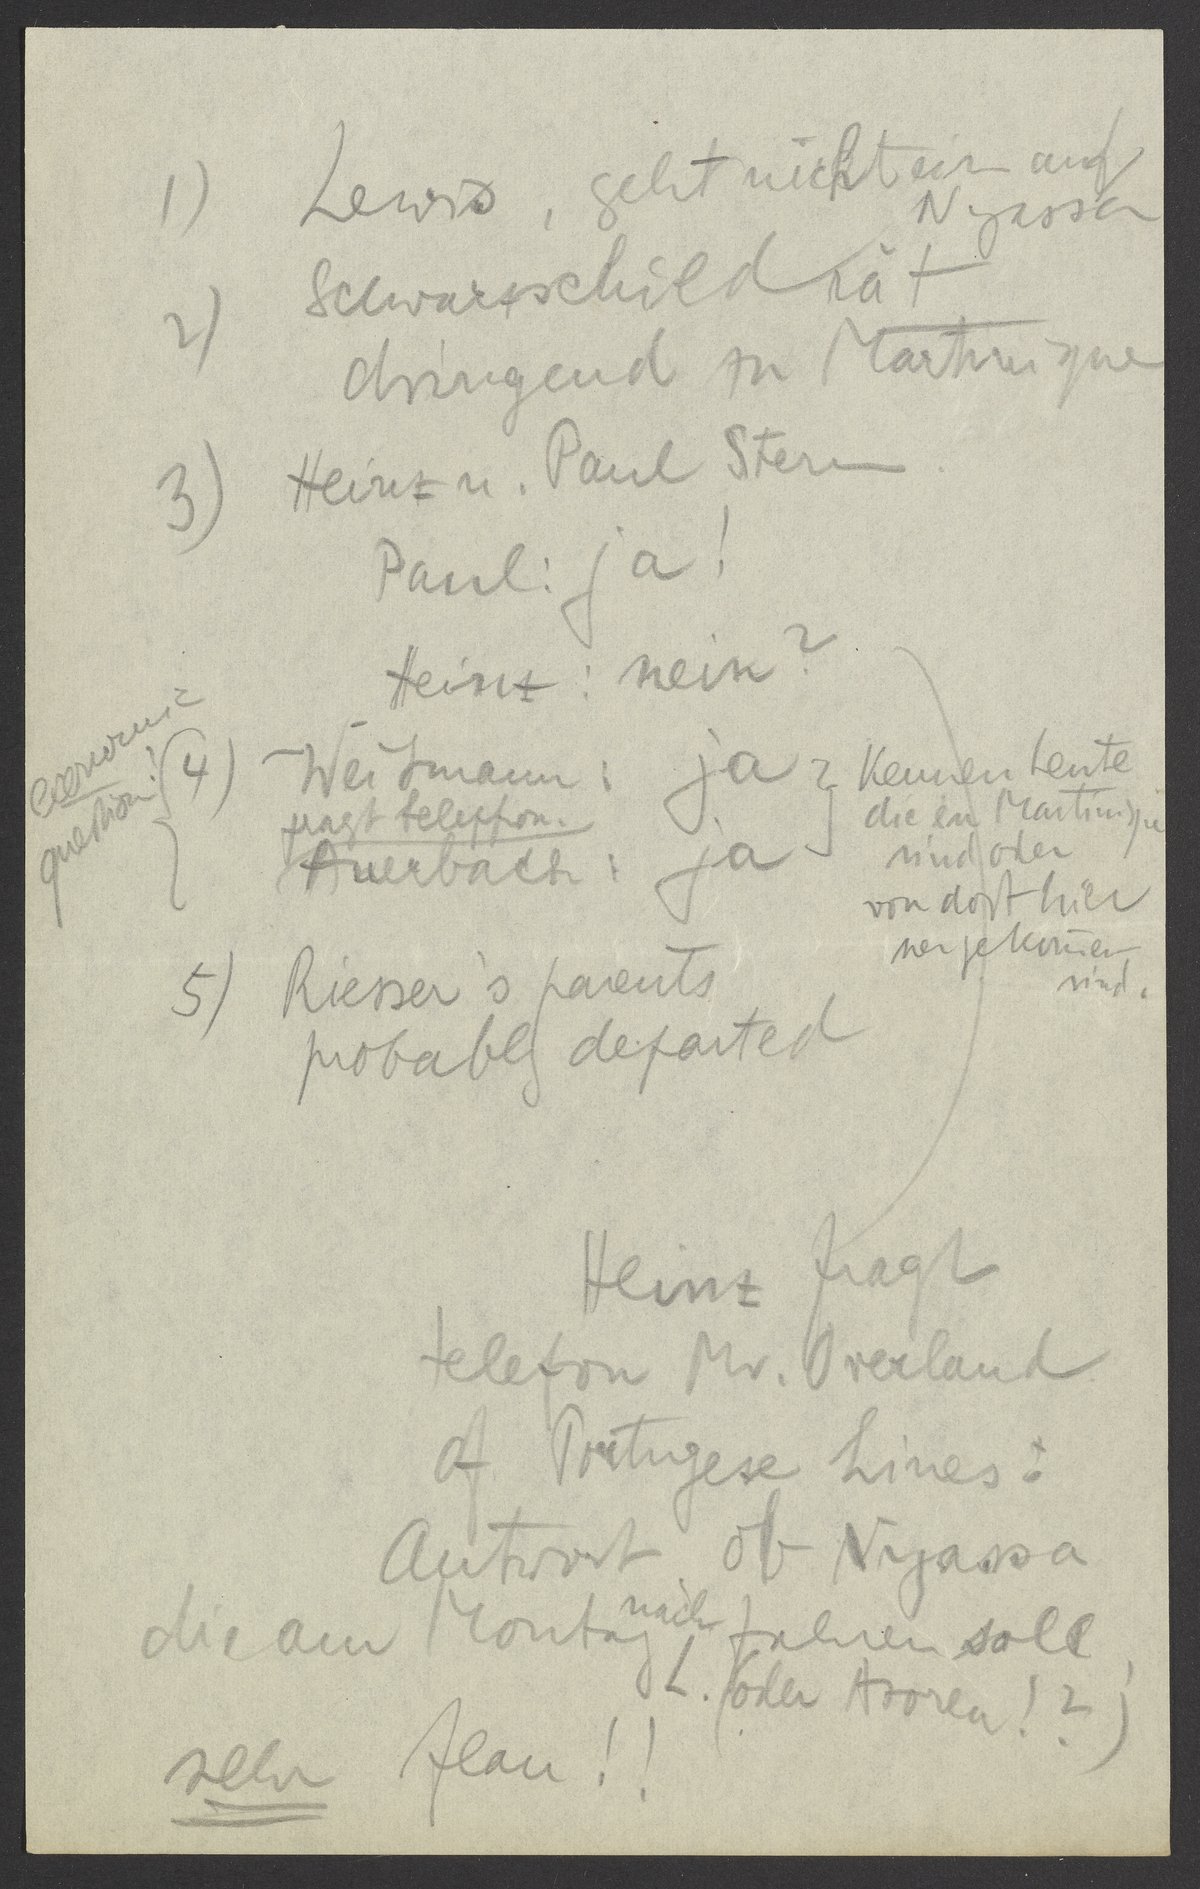 1) Lewis, geht nicht ein auf
Nyassa
2) Schwarzschild rät
dringend zu Martinique
3) Heinz u. Paul Stern.
Paul: ja!
Heinz: nein?
economic
question!
4) Weitmann: ja
fragt telefon.
Auerbach: ja
Kennen Leute
die in Martinique
sind oder
von dort hier
her gekommen
sind.
5) Riesser's parents
probably departed
Heinz fragt
telefon Mr. Overland
of Portugese Lines:
Antwort ob Nyassa
die am Montag nach fahren soll,
L. (oder Azoren!?)
sehr flau!!